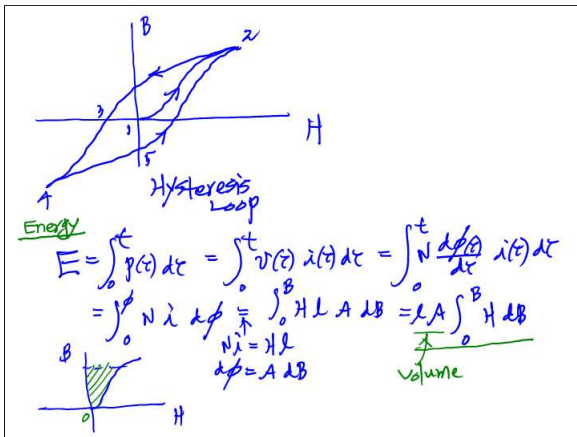 B
2
3
1
H
5
4
Hysteresis
Loop
Energy
E = ∫₀ᵗ p(τ) dτ = ∫₀ᵗ v(τ) i(τ) dτ = ∫₀ᵗ N dϕ(τ)/dτ i(τ) dτ
= ∫₀^ϕ N i dϕ = ∫₀ᴮ H l A dB = l A ∫₀ᴮ H dB
Ni = Hl
dϕ = A dB
volume
B
0
H